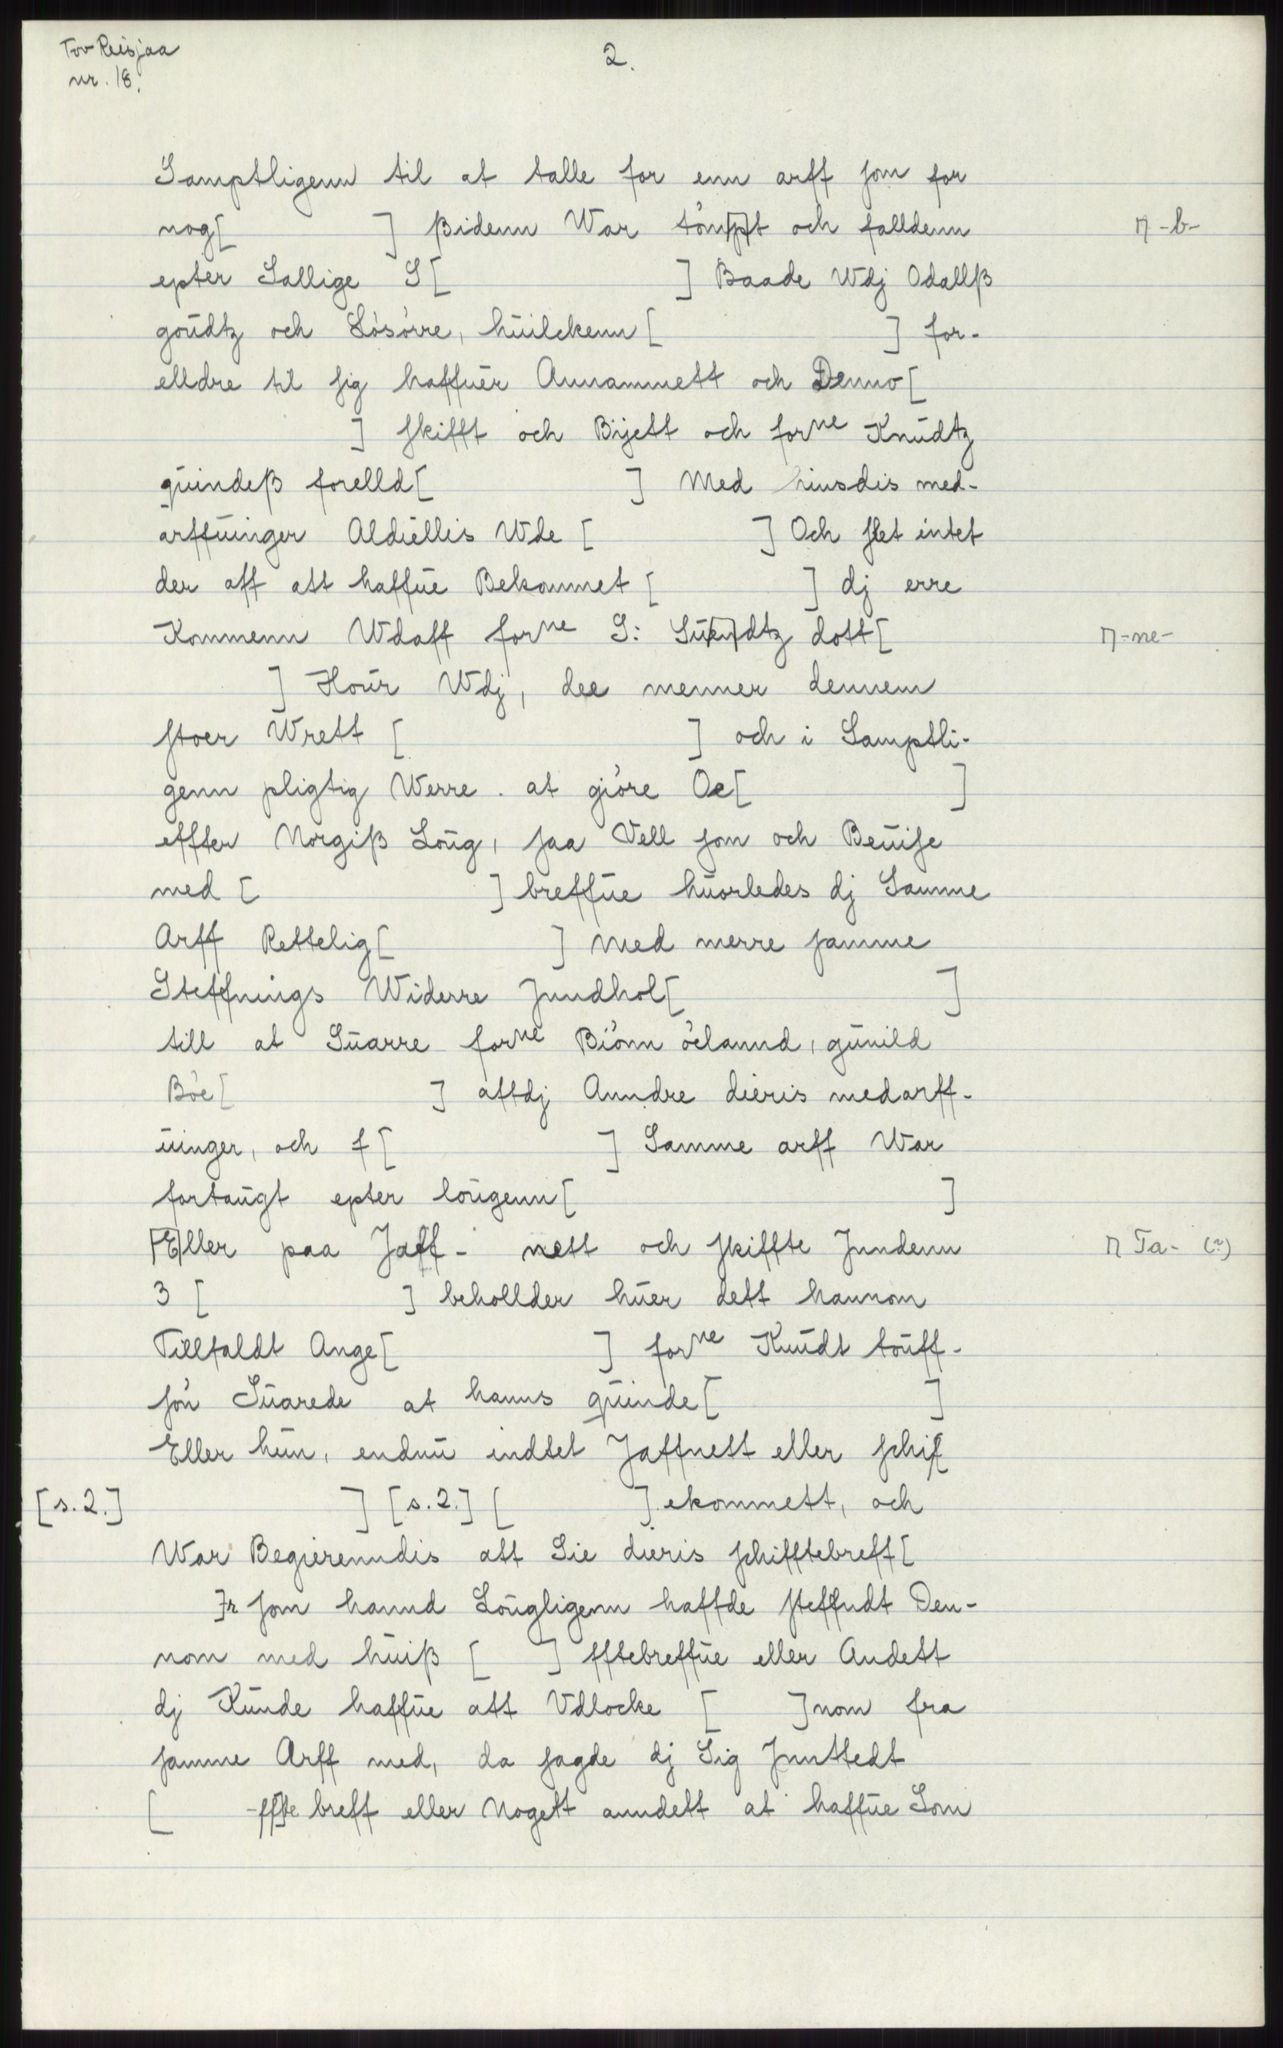 Tov-Reisjaa
nr. 18.
2.
Samptligenn til at talle for enn arff som for
nog[ ] ßidenn War tómpt och falldenn ꓶ -b-
epter Sallige S[ ] Baade Wdj Odallß
goŭdtz och Lósórre, hŭilckenn [ ] for-
elldre til sig haffŭer Annammett och Denno[
] skifft och Bÿett och forne Knŭdtz
qŭindeß forelld[ ] Med hinsdis med-
arffŭinger Aldiellis Wde [ ] Och slet intet
der aff att haffŭe Bekommet [ ] dj erre
Kommenn Wdaff forne S: dtz dott[ ꓶ -ne-
] Hoŭr Wdj, dee menner dennem
stoer Wrett [ ] och i Samptli-
genn pligtig Werre. at gióre Oe[ ]
effter Norgiß Loŭg, saa Vell som och Beŭise
med [ ] breffŭe hŭorledes dj Samme
Arff Rettelig[ ] Med merre samme
Steffnings Widerre Jnndhol[ ]
till at Sŭarre forne Biónn óelannd, gŭnild
Bóe[ ] attdj Anndre dieris medarff-
ŭinger, och f[ ] Samme arff War
fortaŭgt epter loŭgenn[ ]
[E]ller paa Jaff- nett och skiffte Jnndenn ꓶ Ta- (?)
3 [ ] behollder hŭer dett hannom
Tillfaldt Ange[ ] forne Knŭdt toŭff-
són Sŭarede at hanns qŭinde[ ]
Eller hŭn, endnŭ indtet Jaffnett eller schif[
[s. 2.] ] [s. 2.] [ ] ekommett, och
War Begierenndis att Sie dieris schifftebreff[
]r som hannd Loŭgligenn haffde steffndt Den-
nom med hŭiß [ ] fftebreffŭe eller Andett
dj Kŭnde haffŭe att Vdlocke [ ]nom fra
samme Arff med, da sagde dj Sig Jnnttedt
[ -ff]te breff eller Nogett anndett at haffŭe Som